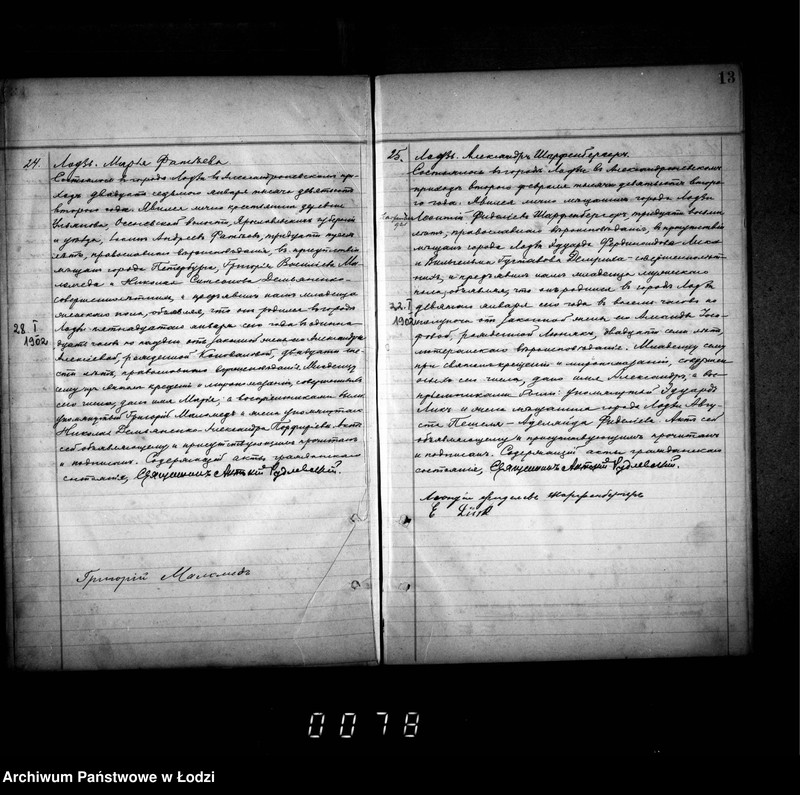 24. Лодзь. Марія Фатѣева
Состоялось въ городѣ Лодзи въ Александроневскомъ при-
ходѣ двадцать седьмого января тысяча девятьсотъ
второго года. Явился лично крестьянинъ деревни
волости, Ярославской губерніи
и уѣзда, Андреевъ Фатѣевъ,
лѣтъ, православнаго вѣроисповѣданія, въ присутствіи
мѣщанъ города Петербурга, Григорія Васильева Ма-
ламеда и Николая Демьяненко
совершеннолѣтнихъ, и предъявилъ намъ младенца
женскаго пола, объявляя, что онъ родился въ городѣ
Лодзи пятнадцатаго января сего года въ одинна-
дцать часовъ по полудни отъ законной жены его Александры
Алексѣевой, рожденной Коноваловой, двадцати ше-
сти лѣтъ, православнаго вѣроисповѣданія. Младенцу
сему при святомъ крещеніи и миропомазаніи, совершенномъ
сего числа, дано имя Марія, а воспріемниками были
упомянутый Григорій Маламедъ и жена упомянутаго
Николая Демьяненко Александра Порфирьева. Актъ
сей объявляющему и присутствующимъ прочитанъ
и подписанъ. Содержащій акты гражданскаго
состоянія, Священникъ Антоній Рудлевскій.
28 I
1902
Григорій Маламедъ
13
25. Лодзь. Александръ Шарфенбергеръ.
Состоялось въ городѣ Лодзи въ Александроневскомъ
приходѣ второго февраля тысяча девятьсотъ второ-
го года. Явился лично мѣщанинъ города Лодзи
Леонтій Фиделевъ Шарфенбергеръ, тридцати восьми
лѣтъ, православнаго вѣроисповѣданія, въ присутствіи
мѣщанъ города Лодзи Эдуарда Фердинандова Лика
и Вильгельма Густавова совершеннолѣт-
нихъ, и предъявилъ намъ младенца мужескаго
пола, объявляя, что онъ родился въ городѣ Лодзи
девятаго января сего года въ восемь часовъ по
полуночи отъ законной жены его Іоси-
фовой, рожденной двадцати семи лѣтъ,
лютеранскаго вѣроисповѣданія. Младенцу сему
при святомъ крещеніи и миропомазаніи, совершен-
номъ сего числа, дано имя Александръ, а вос-
пріемниками были: упомянутый Эдуардъ
Ликъ и жена мѣщанина города Лодзи Авгу-
ста Пешеля - Аделаида Фиделева. Актъ сей
объявляющему и присутствующимъ прочитанъ
и подписанъ. Содержащій акты гражданскаго
состоянія, Священникъ Антоній Рудлевскій.
22. I
1902
Леонтій Фиделевъ Шарфенбергеръ
0078
Archiwum Państwowe w Łodzi